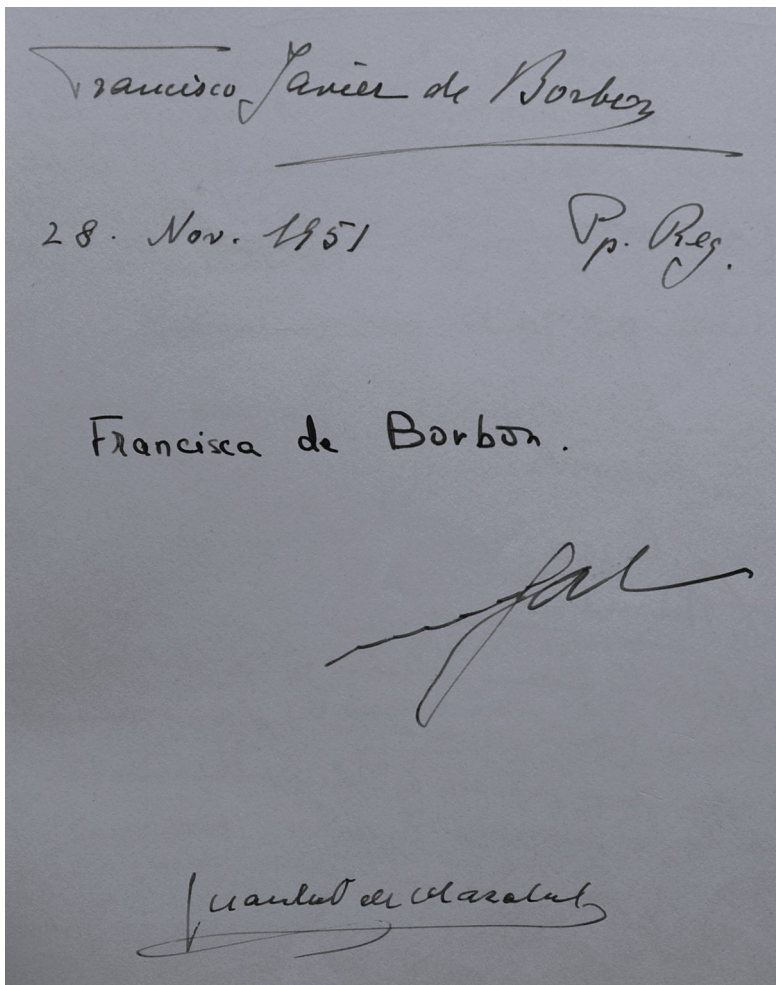 Francisco Javier de Borbon
28. Nov. 1951 Pp. Reg.
Francisca de Borbón.
Fal
de Olazabal